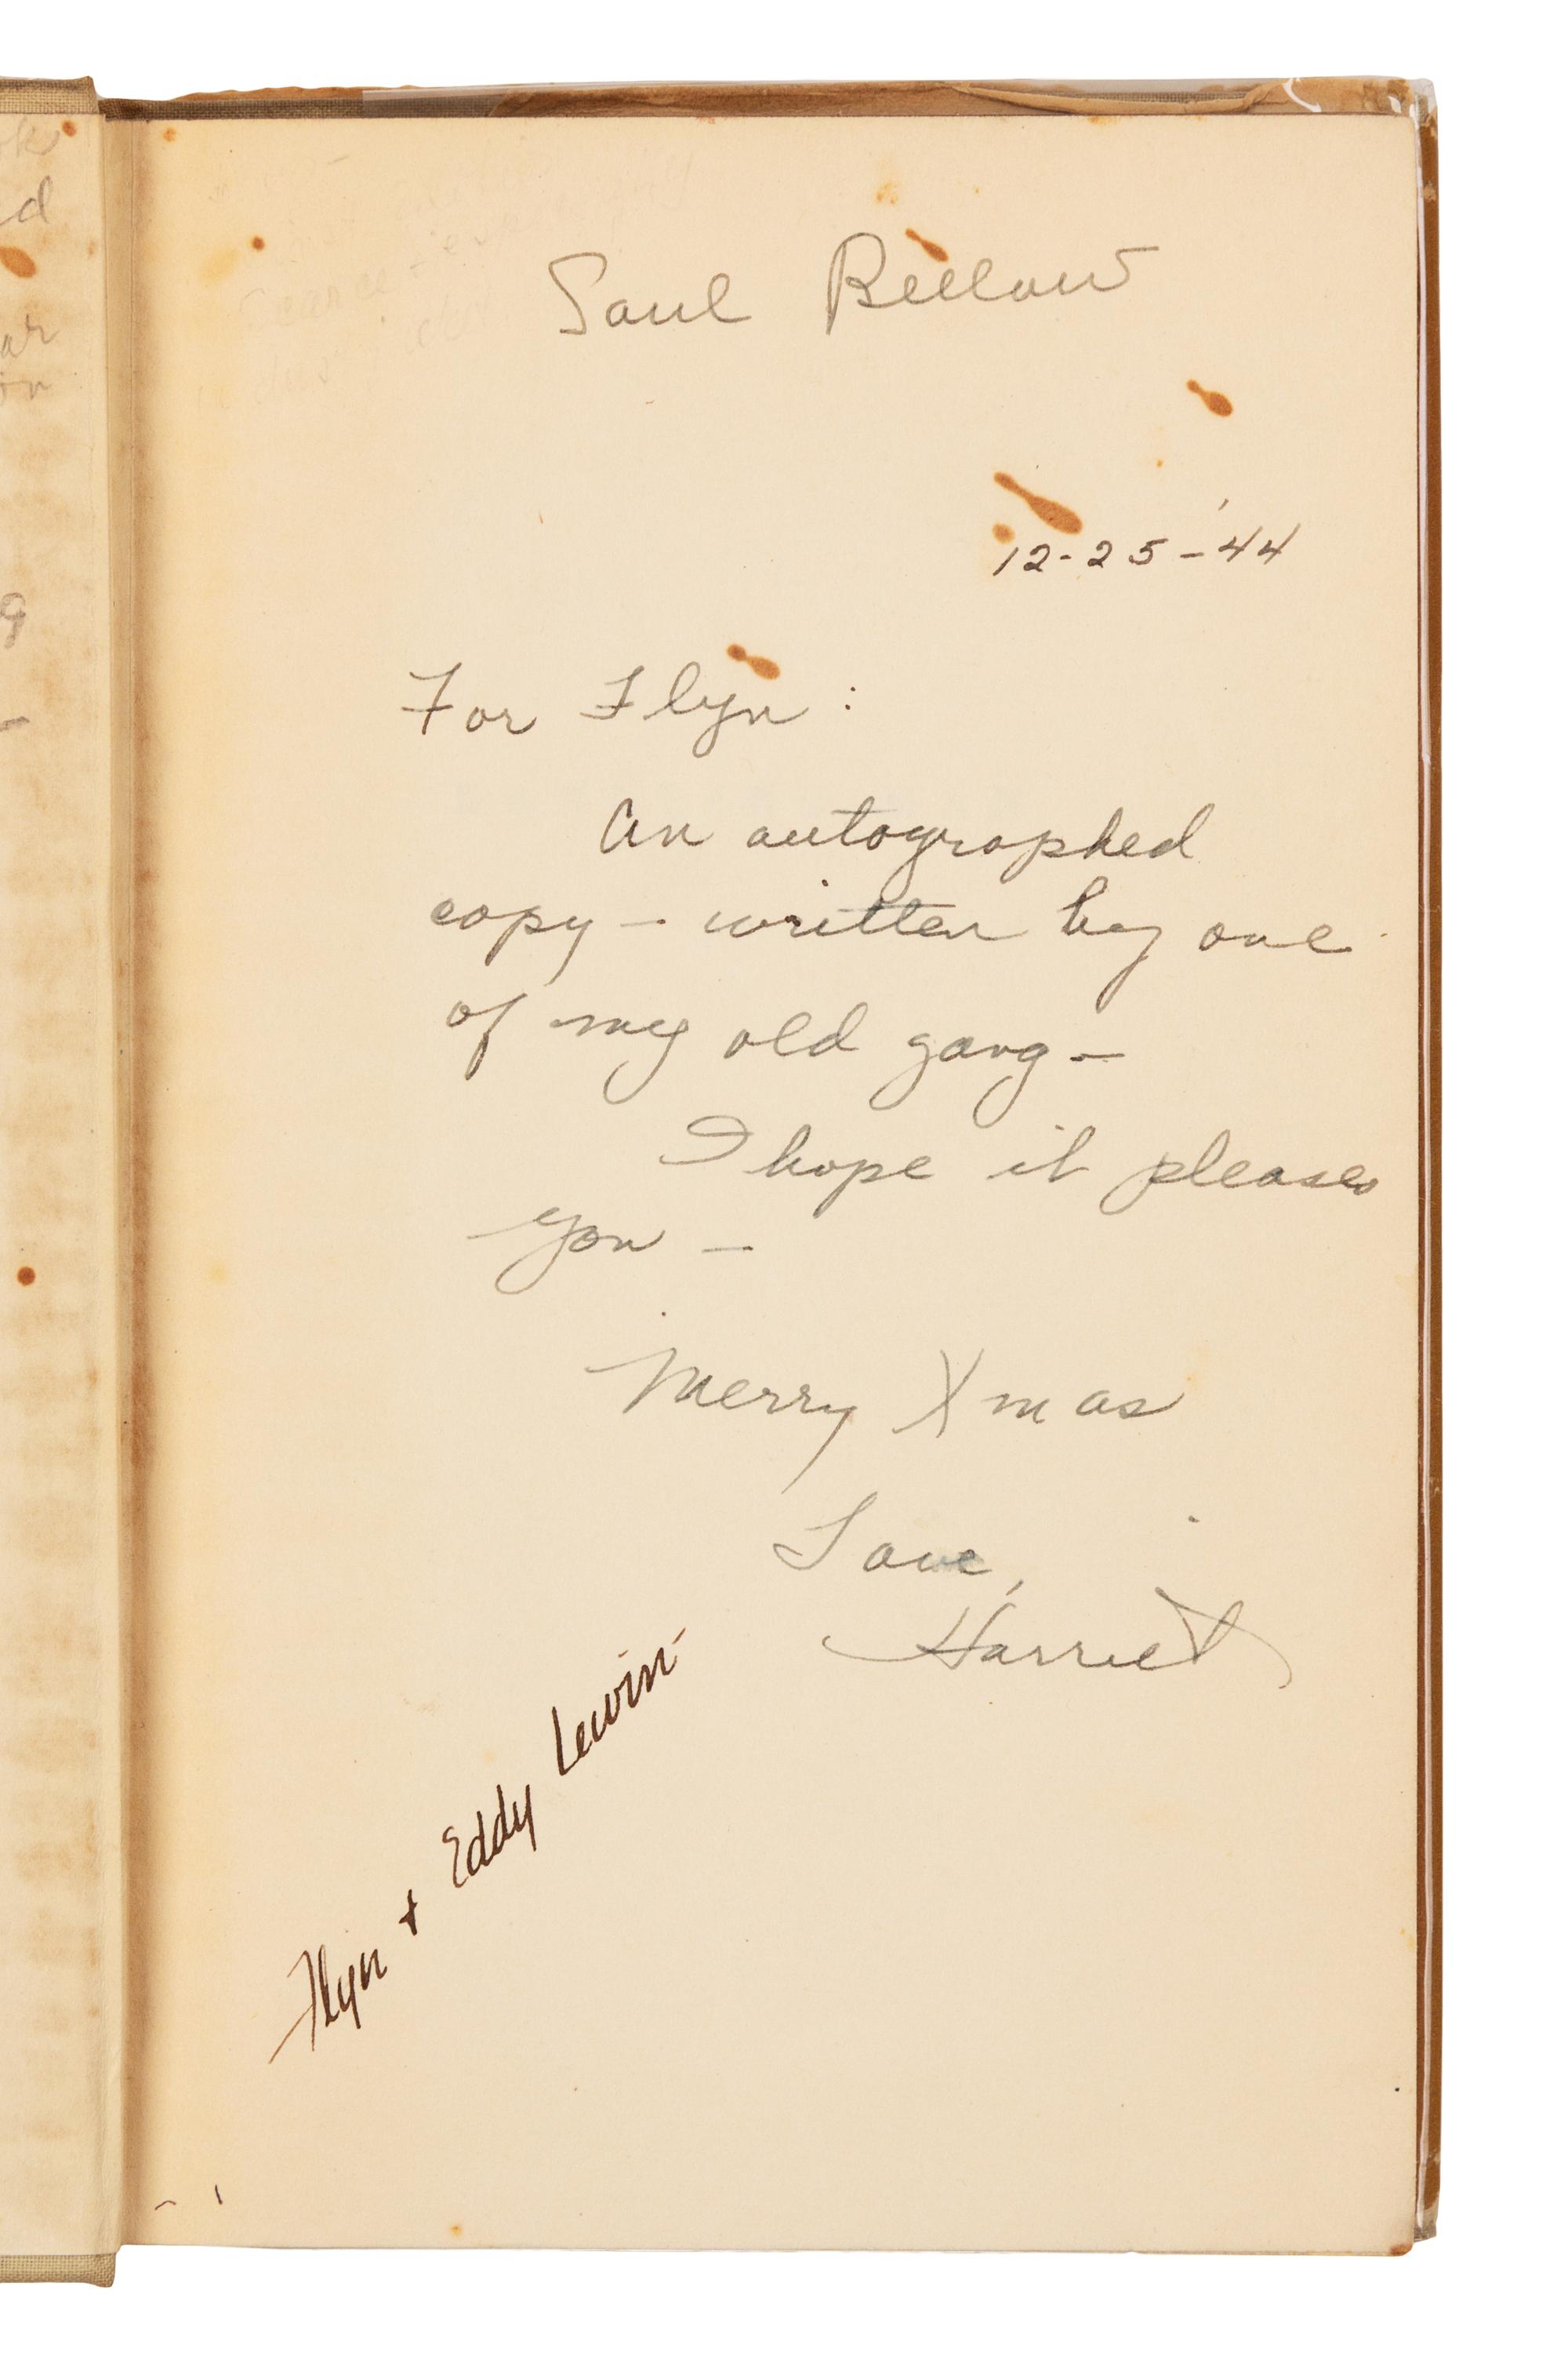 Saul Bellow
12-25-'44
For Flyn:
An autographed
copy - written by one
of my old gang -
I hope it pleases
you -
Merry Xmas
Love,
Harriet
Flyn + Eddy Lewin
d
ar
on
9